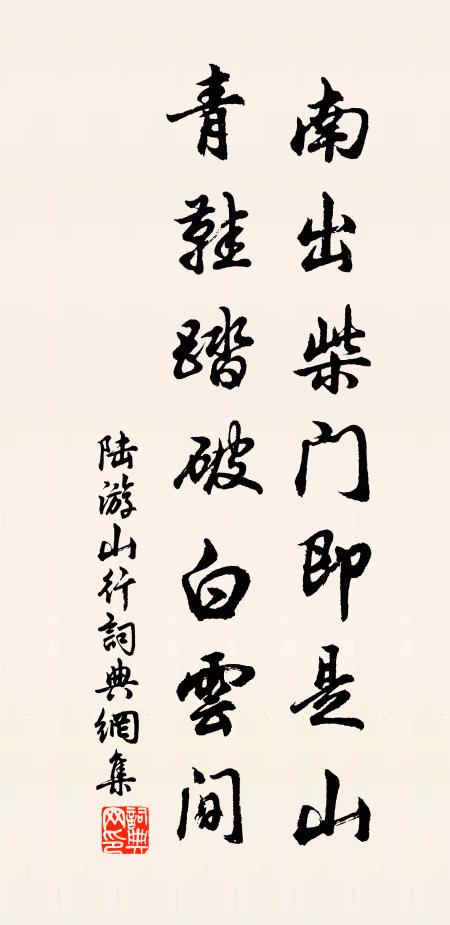 南出柴门即是山
青鞋踏破白雲间
陆游山行詞典網集
詞典網印